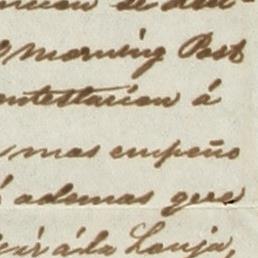 se
Morning Post
contestarian á
mas empeño
ademas que
á la Lonja,